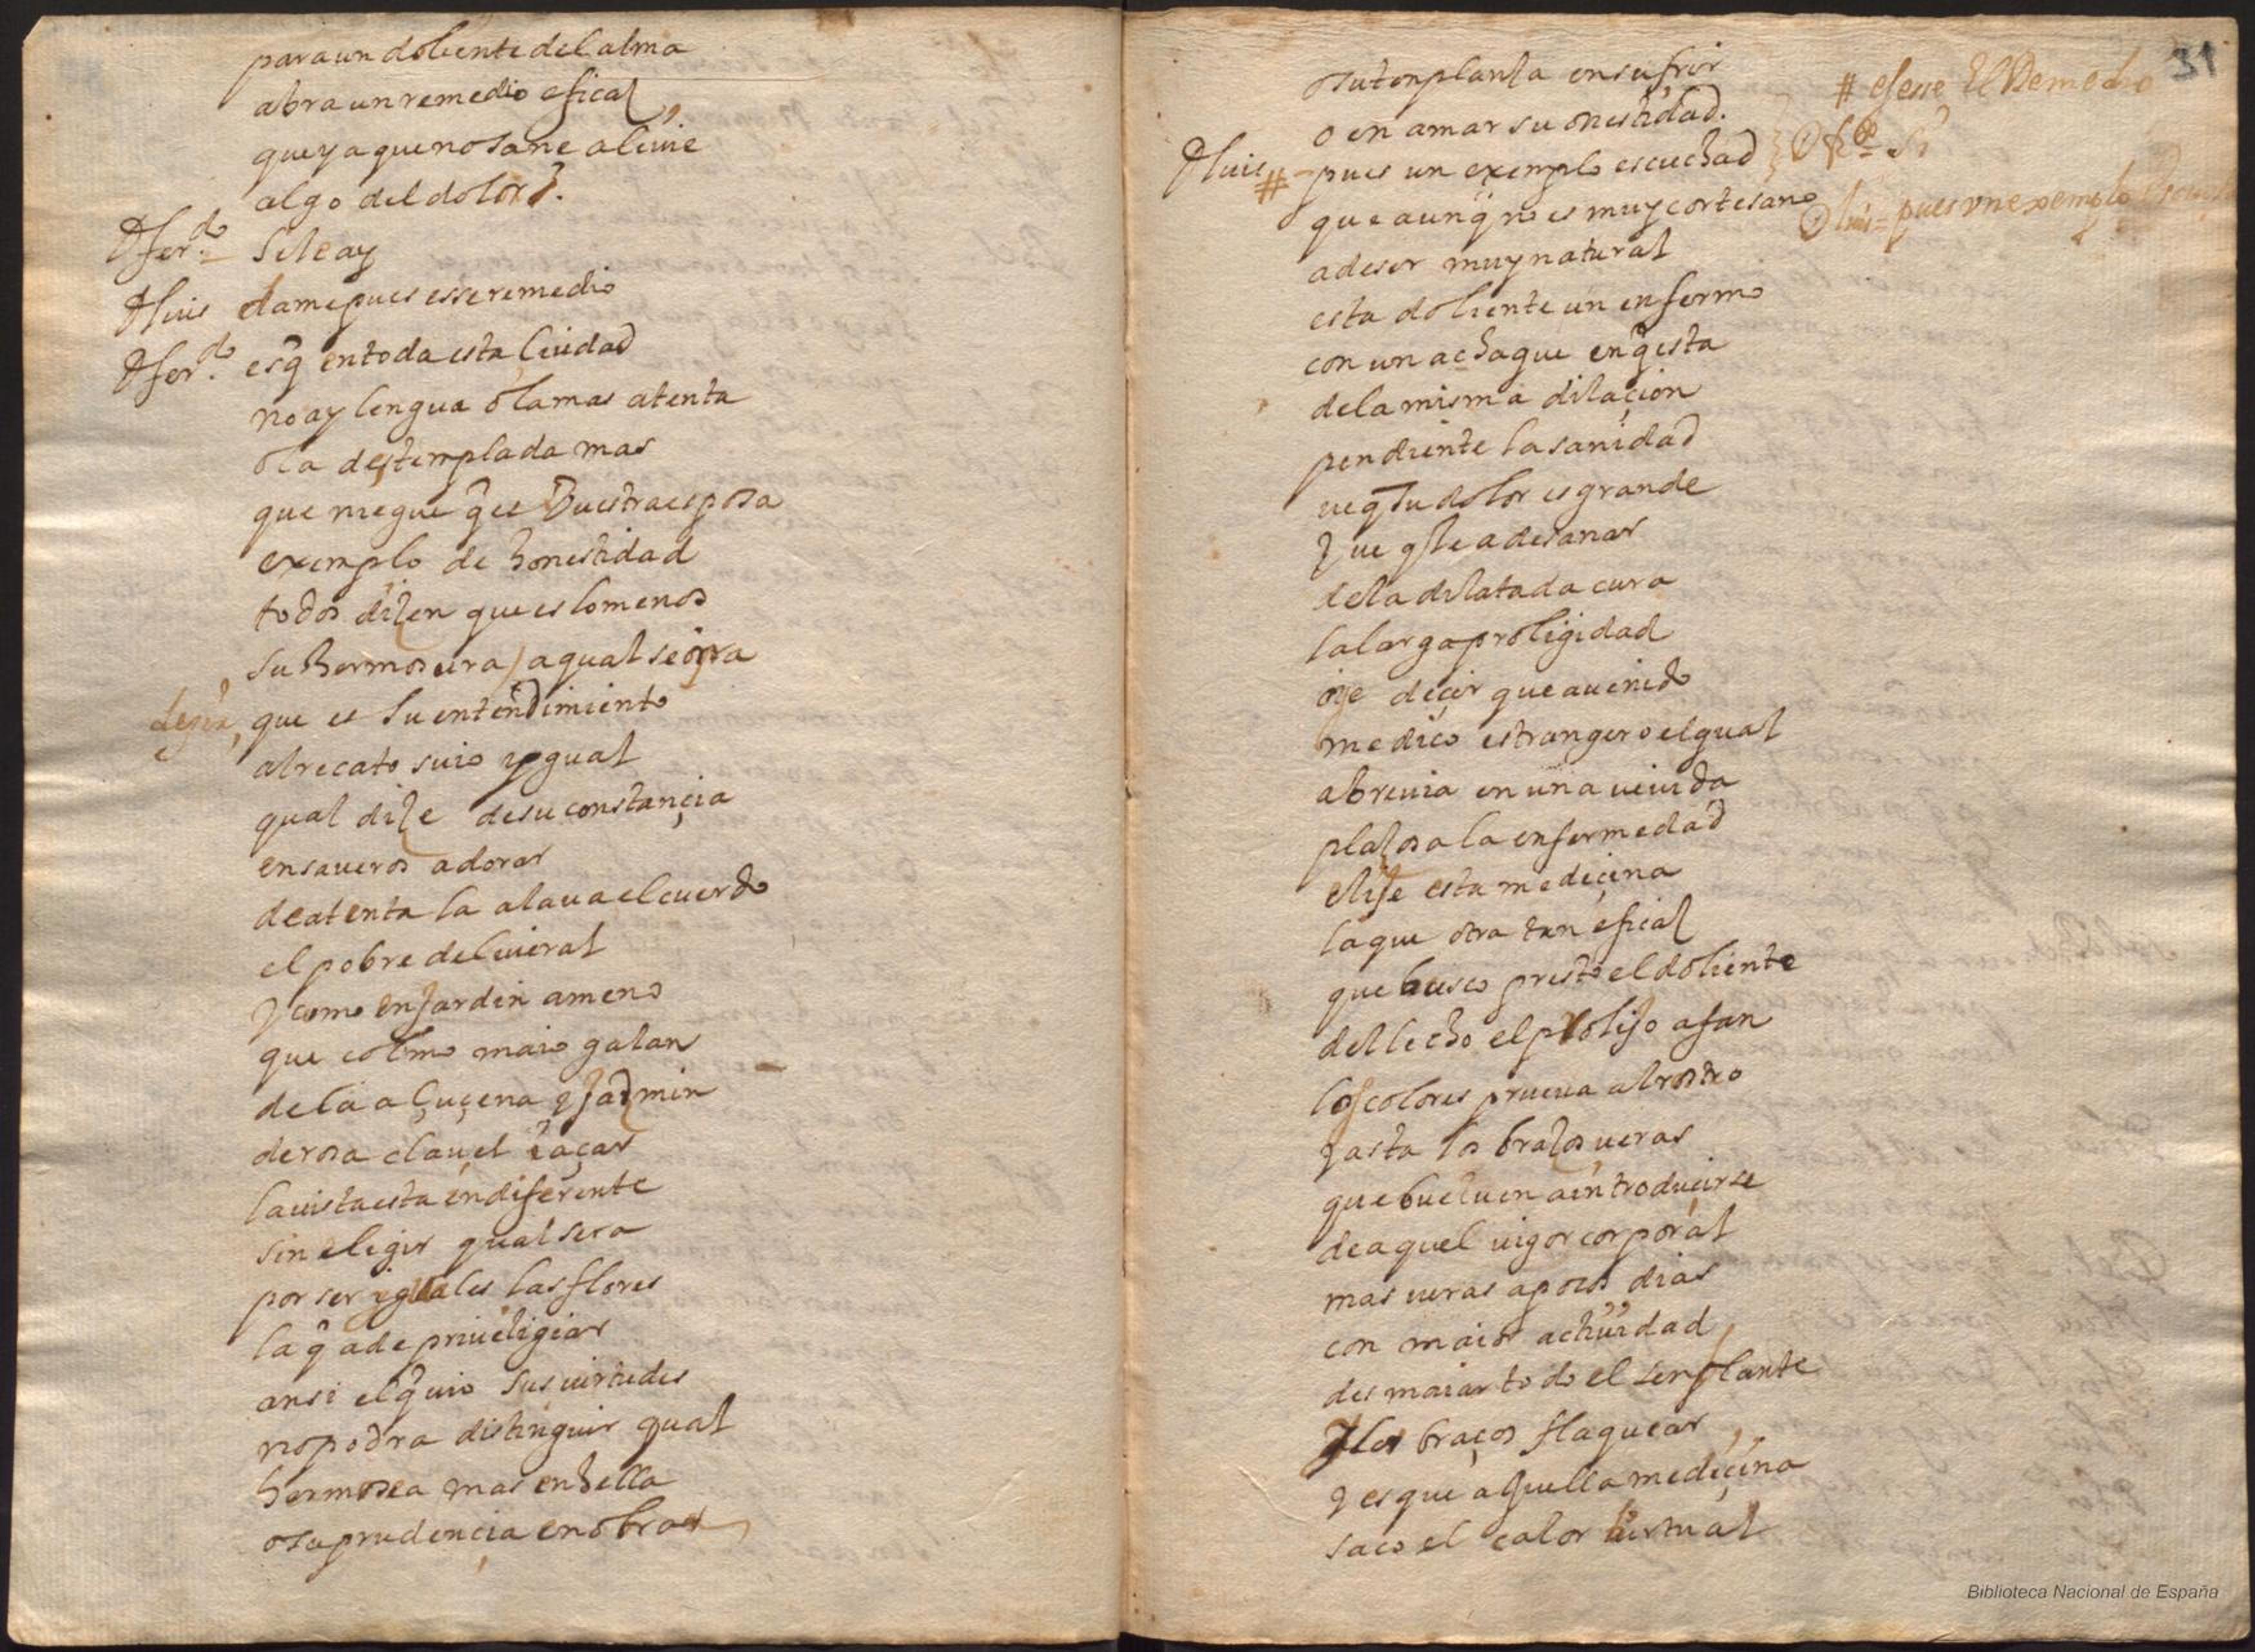 para un doliente del alma
abra un remedio eficaz
que ya que no sane aliuie
algo del dolor?
D fer.do – Si le ay
D luis dame pues esse remedio
D fer.do es q̃ en toda esta Ciudad
no ay lengua o la mas atenta
o la destemplada mas
que niegue q̃ es Vuestra esposa
exemplo de honestidad
todos dizen que es lo menos
su hermosura / a qual se oyra
dezir, que es su entendimiento
al recato suio ygual
qual dize de su constançia
en saueros adorar
de atenta la alaua el cuerdo
el pobre de liueral
y como en Jardin ameno
que colmo maio galan
de la açuçena y Jazmin
de rosa clauel i açar
la uista esta indiferente
sin eligir qual sera
por ser yguales las flores
la q̃ a de priuiligiar
ansi el q̃ uio sus uirtudes
no podra distinguir qual
hermosea mas en hella
o su prudençia en obrar
31
o su tenplanza en sufrir
o en amar su onestidad.
# esse El Remedio
D luis # – pues un exemplo escuchad
D f.do Si
que aunq̃ no es muy cortesano
D luis – pues vn exemplo
a de ser muy natural
esta doliente un enfermo
con un achaque en q̃ esta
de la misma dilaçion
pendiente la sanidad
ue q̃ su dolor es grande
y ue q̃ le a de sanar
de la dilatada cura
la larga proligidad
oye deçir que a uenido
medico estrangero el qual
abreuia en una ueuida
plazos a la enfermedad
elije esta mediçina
la que otra tan eficaz
que busco presto el doliente
del lecho el prolijo afan
los colores prueua al rostro
y asta los brazos ueras
que bueluen a introduçirse
de aquel uigor corporal
mas ueras a pocos dias
con maior actiuidad
desmaiar todo el senblante
y los braços flaquear
y es que aquella mediçina
saco el calor uirtual
Biblioteca Nacional de España